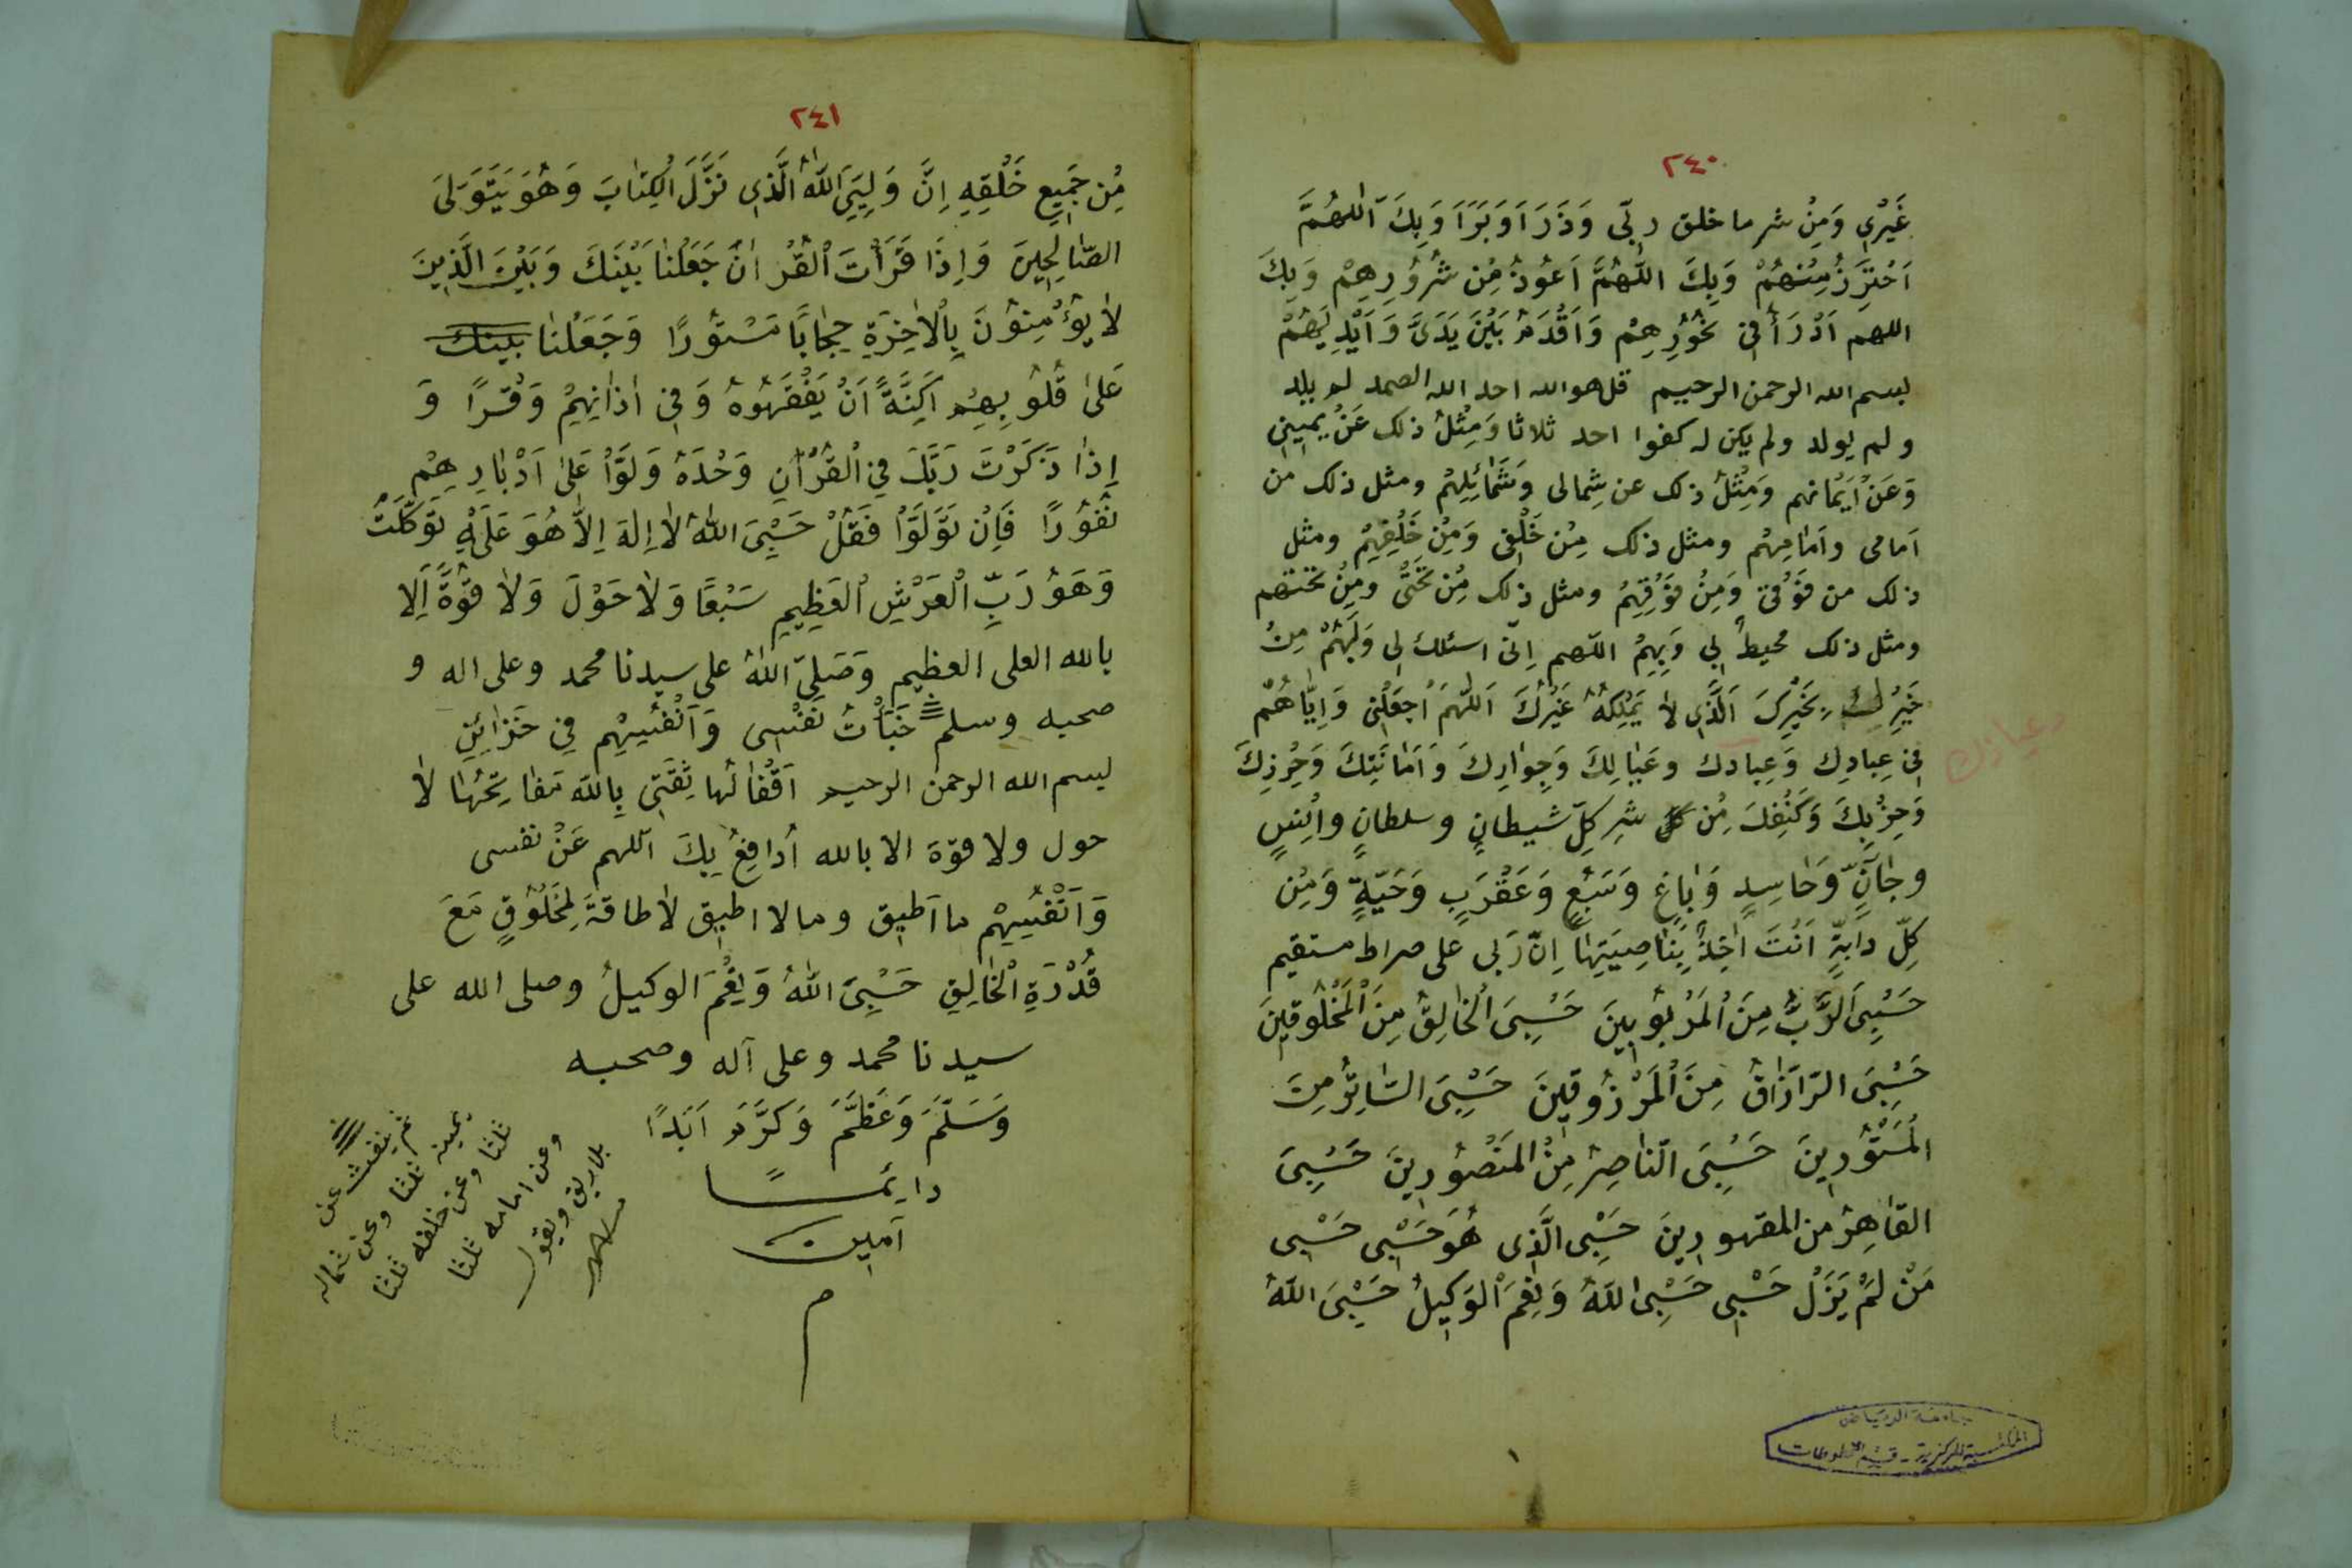 ٢٤٠
غَيْرِي وَمِنْ شر ما خلق ربّى وَذَرَاَ وَبَرَاَ وَبِكَ اللهُمَّ
اَحْتَرِزُ مِنْهُمْ وَبِكَ اللّهُمَّ اَعُوذُ مِن شُرُوْرِهِمْ وَبِكَ
اللهم اَدْرَأُ فِى نُحُوْرِهِمْ وَاُقَدِّمُ بَيْنَ يَدَىَّ وَاَيْدِيَهُمْ
بسم الله الرحمن الرحيم قل هو الله احد الله الصمد لم يلد
ولم يولد ولم يكن له كفوا احد ثلاثا وَمِثْلُ ذلك عَنْ يَمِينِى
وَعَنْ اَيْمَانهم وَمِثْلُ ذلك عن شِمالى وَشَمَائِلِهِمْ ومثل ذلك من
اَمامى واَمامِهِمْ ومثل ذلك مِنْ خَلْفِى وَمِنْ خَلْفِهِمْ ومثل
ذلك من فَوْقى وَمِنْ فَوْقِهِمْ ومثل ذلك مِن تَحْتى ومِنْ تحتهم
ومثل ذلك محيطٌ بِي وَبِهِمْ اللّهم اِنّى اسئلك لى وَلَهُمْ مِنْ
خَيْرِكَ بِخَيْرِكَ الَّذِى لاَ يَمْلِكُهُ غَيْرُكَ اَللّهُمَ اْجعَلْنِى وَاِيَّاهُمْ
فِى عِبادِك وَعِبادك وعَيَالِكَ وَجِوَارِكَ وَاَمَانَتِكَ وَحِرْزِكَ
وعياذك
وَحِزْبِكَ وَكَنَفِكَ مِن كل شرِ كلِّ شيطانٍ وسلطانٍ واِنْسٍ
وجَانٍّ وَحَاسِدٍ وَباغٍ وَسَبُعٍ وَعَقْرَبٍ وَحَيّةٍ وَمِن
كلِّ دابّةٍ اَنْتَ اٰخِذٌ بِنَاصِيَتِهَا اِنّ رَبى على صراط مستقيم
حَسْبِىَ الرَّبُّ مِنَ اْلمَرْبُوبِينَ حَسْبِىَ اْلخَالِقُ مِنَ اْلمَخْلُوقينَ
حَسْبِىَ الرّازَاقُ مِنَ اْلمَرْزُوقِينَ حَسْبِىَ السَّاتِرُ مِنَ
المَسْتُوْرِينَ حَسْبِىَ النّاصِرُ مِنْ المَنْصُوْرِينَ حَسْبِىَ
القَاهِرُ من المقهورِينَ حَسْبِى الَّذِى هُوَ حَسْبِى حَسْبِى
مَنْ لَمْ يَزَلْ حَسْبِى حَسْبِىَ اللّهُ وَنِعْمَ اْلوَكِيلُ حَسْبِىَ اللّهُ
جامعة الرياض
المكتبة المركزية - قسم المخطوطات
٢٤١
مِن جَمِيعِ خَلْقِهِ اِنَّ وَلِيِّىَ اللّهُ الَّذِى نَزَّلَ اْلكِتَابَ وَهُوَ يَتَوَلىَ
الصّالِحِينَ وَاِذَا قَرَأْتَ اْلقُرْانَ جَعَلْنَا بَيْنَكَ وَبَيْنَ الَّذِينَ
لاَ يُؤْمِنُوْنَ بِالْاخِرَةِ حِجَابًا مَسْتُوْرًا وَجَعَلْنا بينك
عَلىَ قُلُوْبِهِمْ اَكِنَّةً اَنْ يَفْقَهُوهُ وَفِى اٰذَانِهِمْ وَقْرًا وَ
اِذَا ذَكَرْتَ رَبَّكَ فِى القُرْاٰنِ وَحْدَهُ وَلَوَّاْ عَلىٰ اَدْبَارِهِمْ
نُفُوْرًا فَاِنْ تَوَلَّوَاْ فَقُلْ حَسْبِىَ اللّهُ لاَ اِلهَ اِلاَّ هُوَ عَلَيْهِ تَوَكَّلْتُ
وَهُوَ رَبُّ الْعَرْشِ اْلعَظِيمِ سَبْعًا وَلاَ حَوْلَ وَلاَ قُوَّةَ اَلِا
بالله العلى العظيم وَصَلىّ اللهُ على سيدنا محمد وعلى اله و
صحبه وسلم خَبَأْتُ نَفْسِى وَاَنْفُسِهِم فِى خَزَائِنِ
بسم الله الرحمن الرحيم اَقْفَالُها ثِقَتِى بِاللهِ مَفَاتِحُهَا لاَ
حول ولا قوّة الا بالله اُدافِعُ بِكَ اللهم عَنْ نفسى
وَاَنْفُسِهِمْ ما اَطيق وما لا اطيق لاَ طاقةَ لمِخْلُوْقٍ مَعَ
قُدْرَةِ اْلخَالِقِ حَسْبِىَ اللهُ وَنِعْمَ الوكيلُ وصلى الله على
سيدنا محمد وعلى آله وصحبه
وَسَلَّمَ وَعَظَّمَ وَكَرَّمَ اَبَدًا
دايمًا
آمين
م
ثم ينفث عن
يمينه ثلثا وعن شماله
ثلثا وعن خلفه ثلثا
وعن امامه ثلثا
بلاريق ويقول